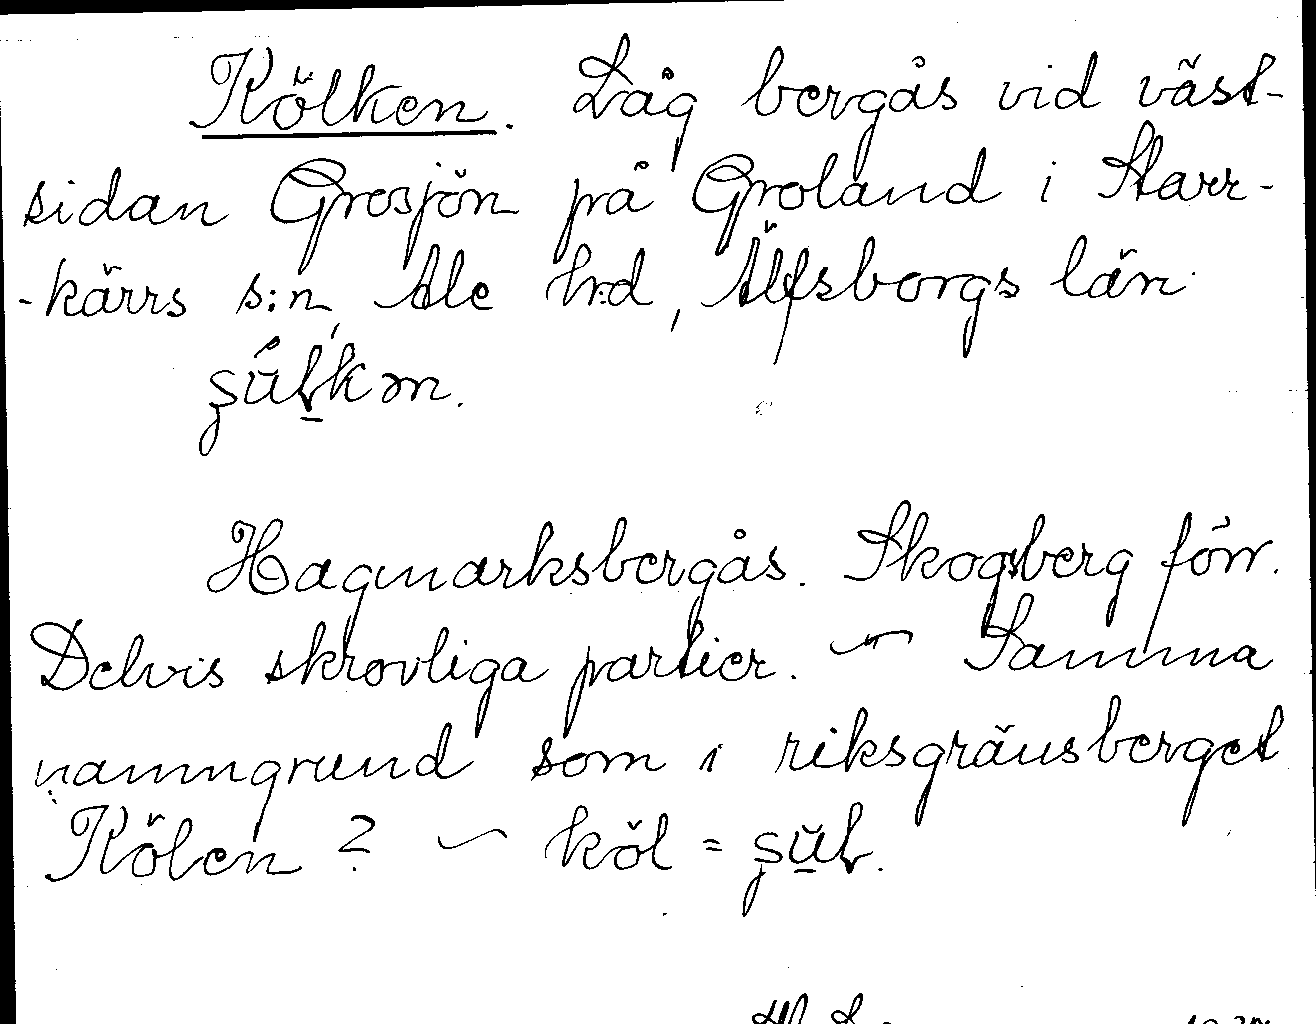 Kölken. Låg bergås vid väst-
sidan Grosjön på Groland i Starr-
-kärrs s:n, Ale hrd, Älfsborgs län
Hagmarksbergås. Skogsberg förr.
Delvis skrovliga partier. ~ Samma
namngrund som i riksgränsberget
Kölen? ~ köl =